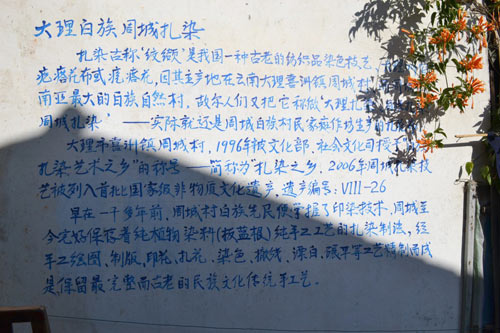 大理白族周城扎染
扎染古称‘绞缬’是我国一种古老的纺织品染色技艺，
疙瘩花布或疙瘩花，因其主产地在云南大理喜洲镇周城村，
南亚最大的白族自然村，故尔人们又把它称做‘大理扎染’
周城扎染’——实际就还是周城白族村民家庭作坊生产的扎染
大理市喜洲镇周城村，1996年被文化部、社会文化司授予“
扎染艺术之乡”的称号——简称为“扎染之乡。2006年周城扎染技
艺被列入首批国家级非物质文化遗产，遗产编号：VIII-26
早在一千多年前，周城村白族先民便掌握了印染技术，周城至
今完好保存着纯植物染料（板蓝根）纯手工工艺的扎染制法，经
手工绘图、制版、印花、扎花、染色、撤线、漂白、碾平等工艺精制而成
是保留最完整而古老的民族文化传统手工艺。